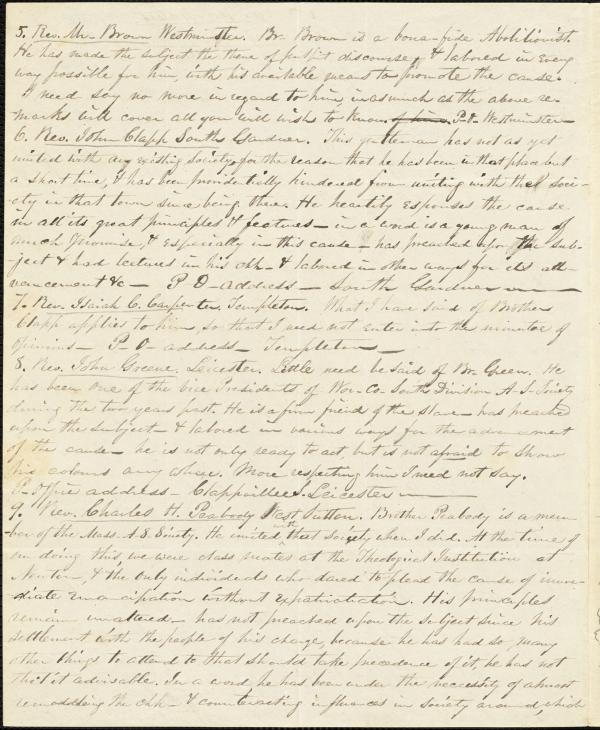 5. Rev. Mr. Brown Westminster. Br. Brown is a bona-fide Abolitionist.
He has made the subject the theme of pulpit discourse, & labored in every
way possible for him, with his available means to promote the cause.
I need say no more in regard to him, inasmuch as the above re-
marks will cover all you will wish to know. P.O. Westminster
6. Rev. John Clapp South Gardner. This gentleman has not as yet
united with any existing society, for the reason that he has been in that place but
a short time, & has been providentially hindered from uniting with the soci-
ety in that town since being there. He heartily espouses the cause
in all its great principles & features - in a word is a young man of
much promise, & especially in this cause - has preached upon the sub-
ject & had lectures in his chh - & labored in other ways for its ad-
vancement &c - P-O-address - South Gardner
7. Rev. Isaiah C. Carpenter, Templeton. What I have said of Brother
Clapp applies to him, so that I need not enter into the minutiae of
opinions - P-O-address - Templeton -
8. Rev. John Greene. Leicester. Little need be said of Br. Green. He
has been one of the Vice Presidents of Wor. Co. South Division A-S-Society
during the two years past. He is a firm friend of the slave - has preached
upon the subject - & labored in various ways for the advancement
of the cause - he is not only ready to act, but is not afraid to show
his colours any where. More respecting him I need not say.
P-Office address - Clappville Leicester
9. Rev. Charles H. Peabody West Sutton. Brother Peabody is a mem-
ber of the Mass. A. S. Society. He united with that society when I did. At the time of
our doing this, we were class mates at the Theological Institution at
Newton, & the only individuals who dared to plead the cause of imme-
diate emancipation without expatriation. His principles
remain unaltered - has not preached upon the subject since his
settlement with the people of his charge, because he has had so many
other things to attend to that should take precedence of it, he has not
thot it advisable. In a word, he has been under the necessity of almost
remodelling the chh - & counteracting influences in society around, which